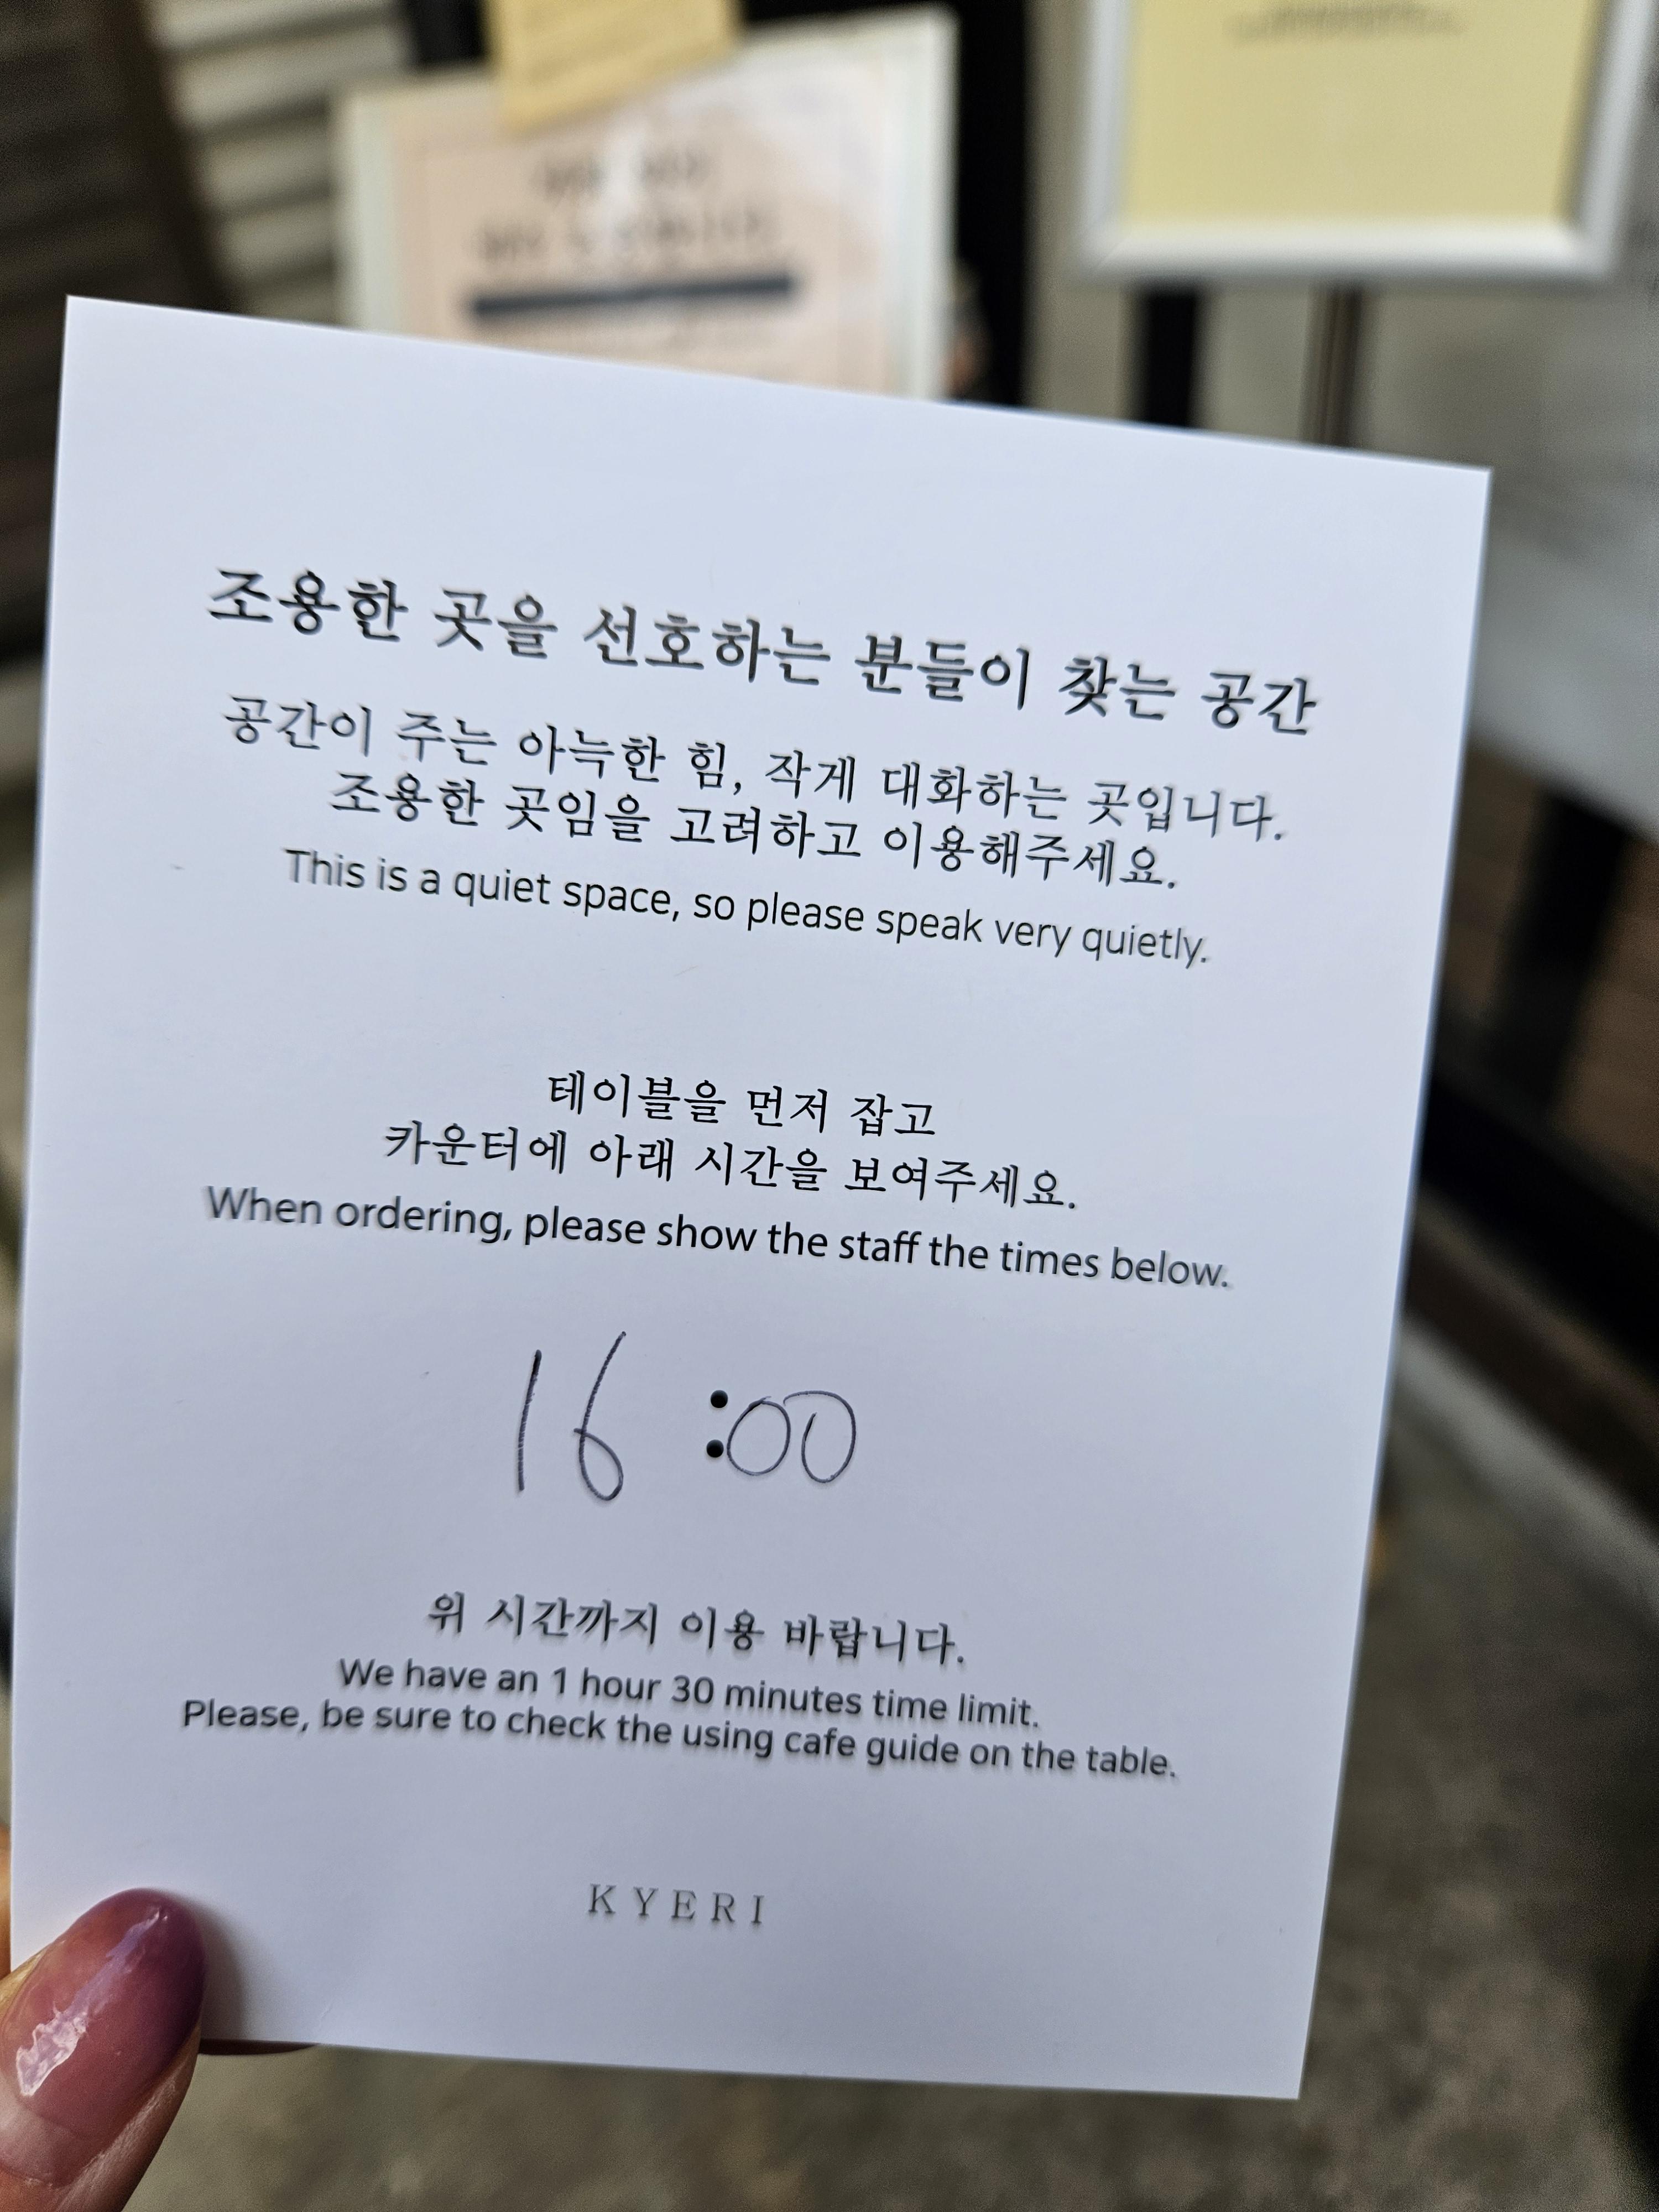 조용한 곳을 선호하는 분들이 찾는 공간
공간이 주는 아늑한 힘, 작게 대화하는 곳입니다.
조용한 곳임을 고려하고 이용해주세요.
This is a quiet space, so please speak very quietly.
테이블을 먼저 잡고
카운터에 아래 시간을 보여주세요.
When ordering, please show the staff the times below.
16:00
위 시간까지 이용 바랍니다.
We have an 1 hour 30 minutes time limit.
Please, be sure to check the using cafe guide on the table.
KYERI